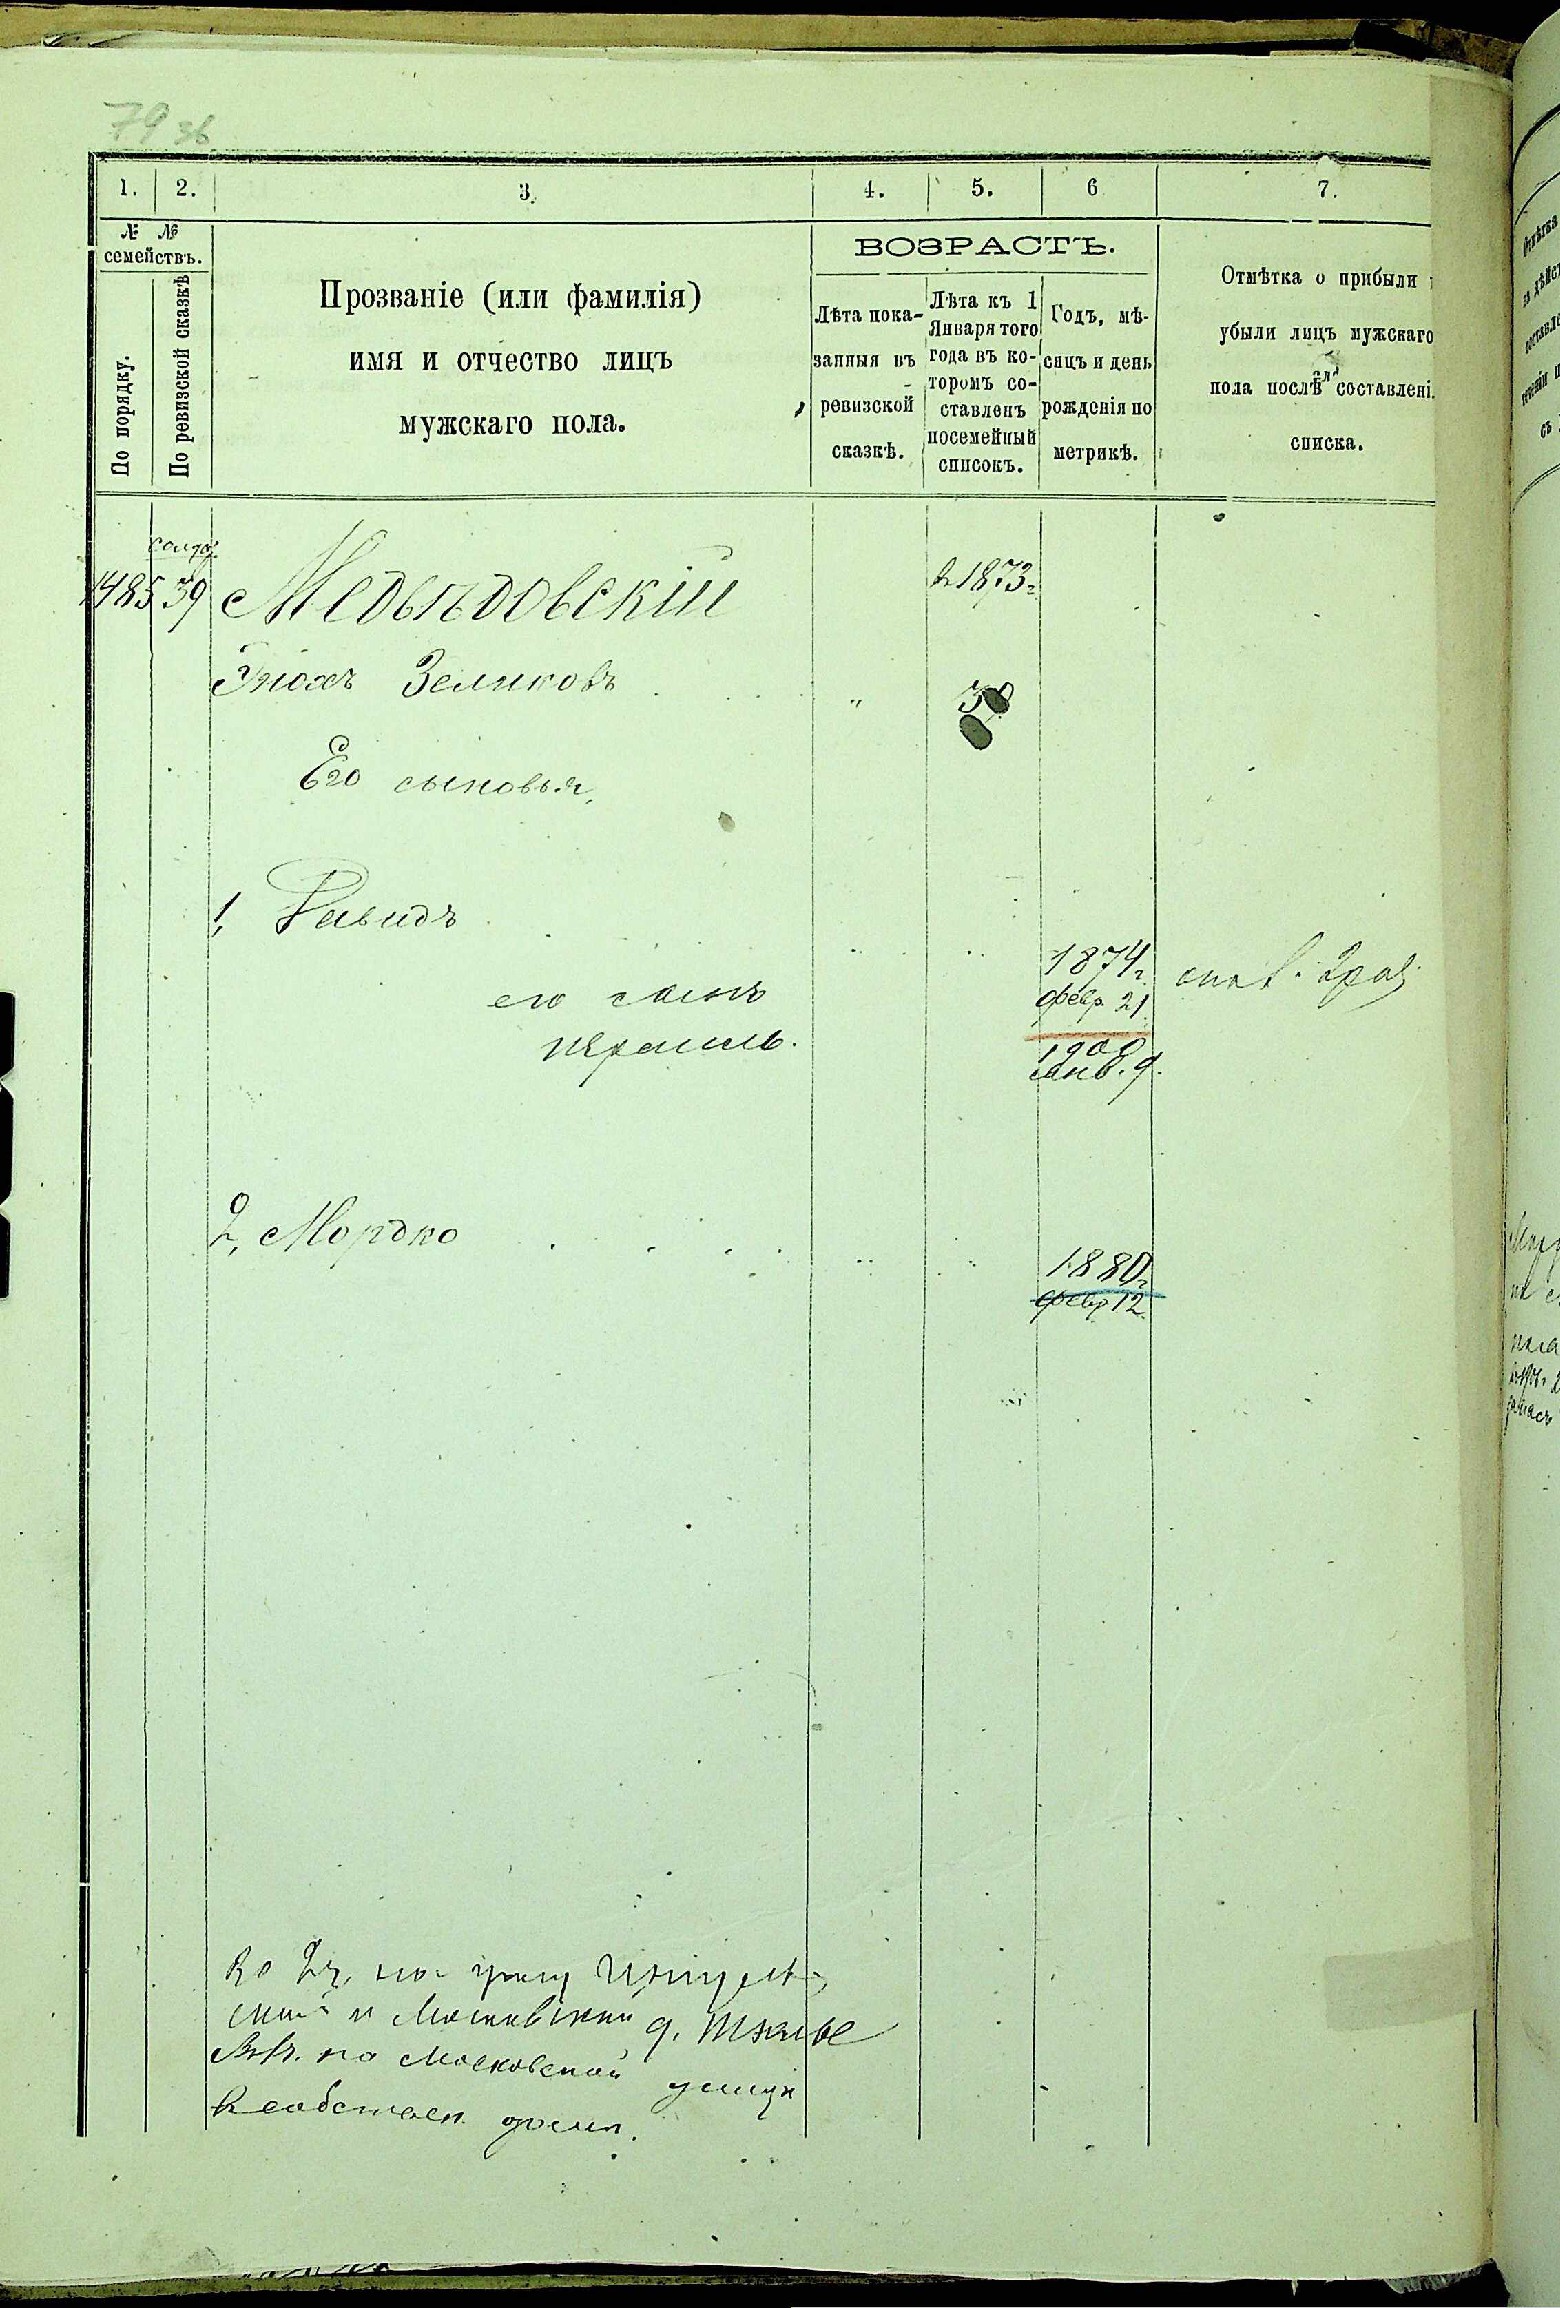 79 зв
1. 2. 3. 4. 5. 6 7.
№ №
семействъ.
По порядку.
По ревизской сказкѣ
Прозваніе (или фамилія)
имя и отчество лицъ
мужскаго пола.
ВОЗРАСТЪ.
Лѣта пока-
занныя въ
ревизской
сказкѣ.
Лѣта къ 1
Января того
года въ ко-
торомъ со-
ставленъ
посемейный
списокъ.
Годъ, мѣ-
сяцъ и день
рожденія по
метрикѣ.
Отмѣтка о прибыли
убыли лицъ мужскаго
пола послѣ составлені
списка.
1485 39 Медвѣдовскій 1873г.
Энохъ Зеликовъ
Его сыновья,
1, Давидъ
1874г.
февр. 21.
его сынъ
Израиль.
1900
Янв. 9.
2, Мордко
1880г.
февр 12.
во 2 ч. по углу
и Московской д.
по Московской улицѣ
В собствен. домѣ.